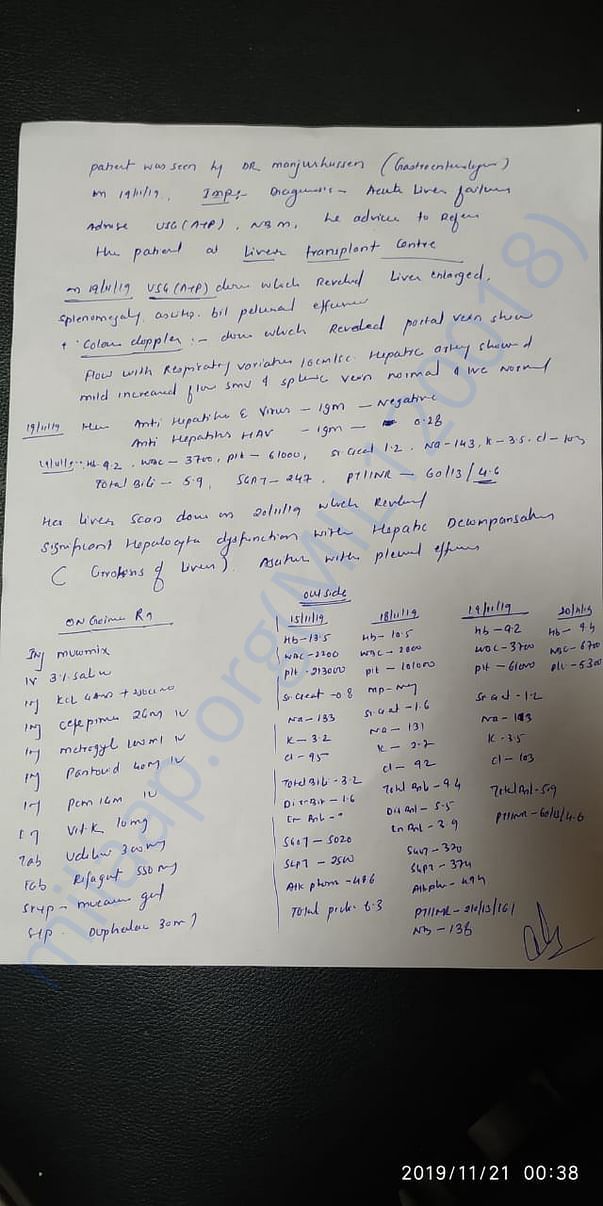 patient was seen by DR manjurhussen (Gastroenterologen)
on 19/11/19. Imp:- Diagnosis - Acute Liver failure
Advise USG (A+P), NBM, he advice to Refer
the patient at Liver transplant Centre
on 19/11/19 USG (A+P) done which Reveled Liver enlarged,
splenomegaly, bil pelunal
+ Colour doppler :- done which Revealed portal vein show
flow with Respiratory variation 16cm/sc. Hepatic artery showed
mild increased flow smv & splenic vein normal & IVC normal
19/11/19 Her Anti Hepatitis E Virus - Igm - Negative
Anti Hepatitis HAV - Igm - 0.28
Hb-9.2, WBC - 3700, plt - 61000, sr creat 1.2, Na-143, K-3.5, cl-103
Total Bili - 5.9, SGPT - 247, PT/INR - 60/13/4.6
Her Liver Scan done on 20/11/19 which Reveled
Significant Hepatocyte dysfunction with Hepatic Decompansation
( of Liver). with plewal
ON Going Rx
Inj mucomix
IV 3% saline
Inj KCL
Inj cefepime 2Gm IV
Inj metrogyl 100ml IV
Inj Pantovid 40mg IV
Inj pcm 1Gm IV
Inj Vit.K 10mg
Tab Udiliv 300mg
Tab Rifagut 550mg
Syrup - mucaine gel
Syp. Duphalac 30ml
outside
15/11/19 18/11/19 19/11/19 20/11/19
Hb-13.5 Hb-10.5 Hb-9.2 Hb-9.4
WBC-2200 WBC-2800 WBC-3700 WBC-6700
plt-213000 plt-101000 plt-61000
sr.creat-0.8 mp-neg
sr.creat-1.6 sr.creat-1.2
Na-133 Na-131
K-3.2 K-2.7 K-3.5
cl-95 cl-92 cl-103
Total Bili-3.2 Total Bili-9.4 Total Bil-5.9
Dir-Bil-1.6 Dir Bil-5.5
In Bil-3.9 PT/INR-60/13/4.6
SGOT-5020 SGOT-320
SGPT-2500 SGPT-374
Alk phom-486 Alkpho-494
Total prot-6.3
PT/INR-
138
milaap.org(MIL120018)
2019/11/21 00:38